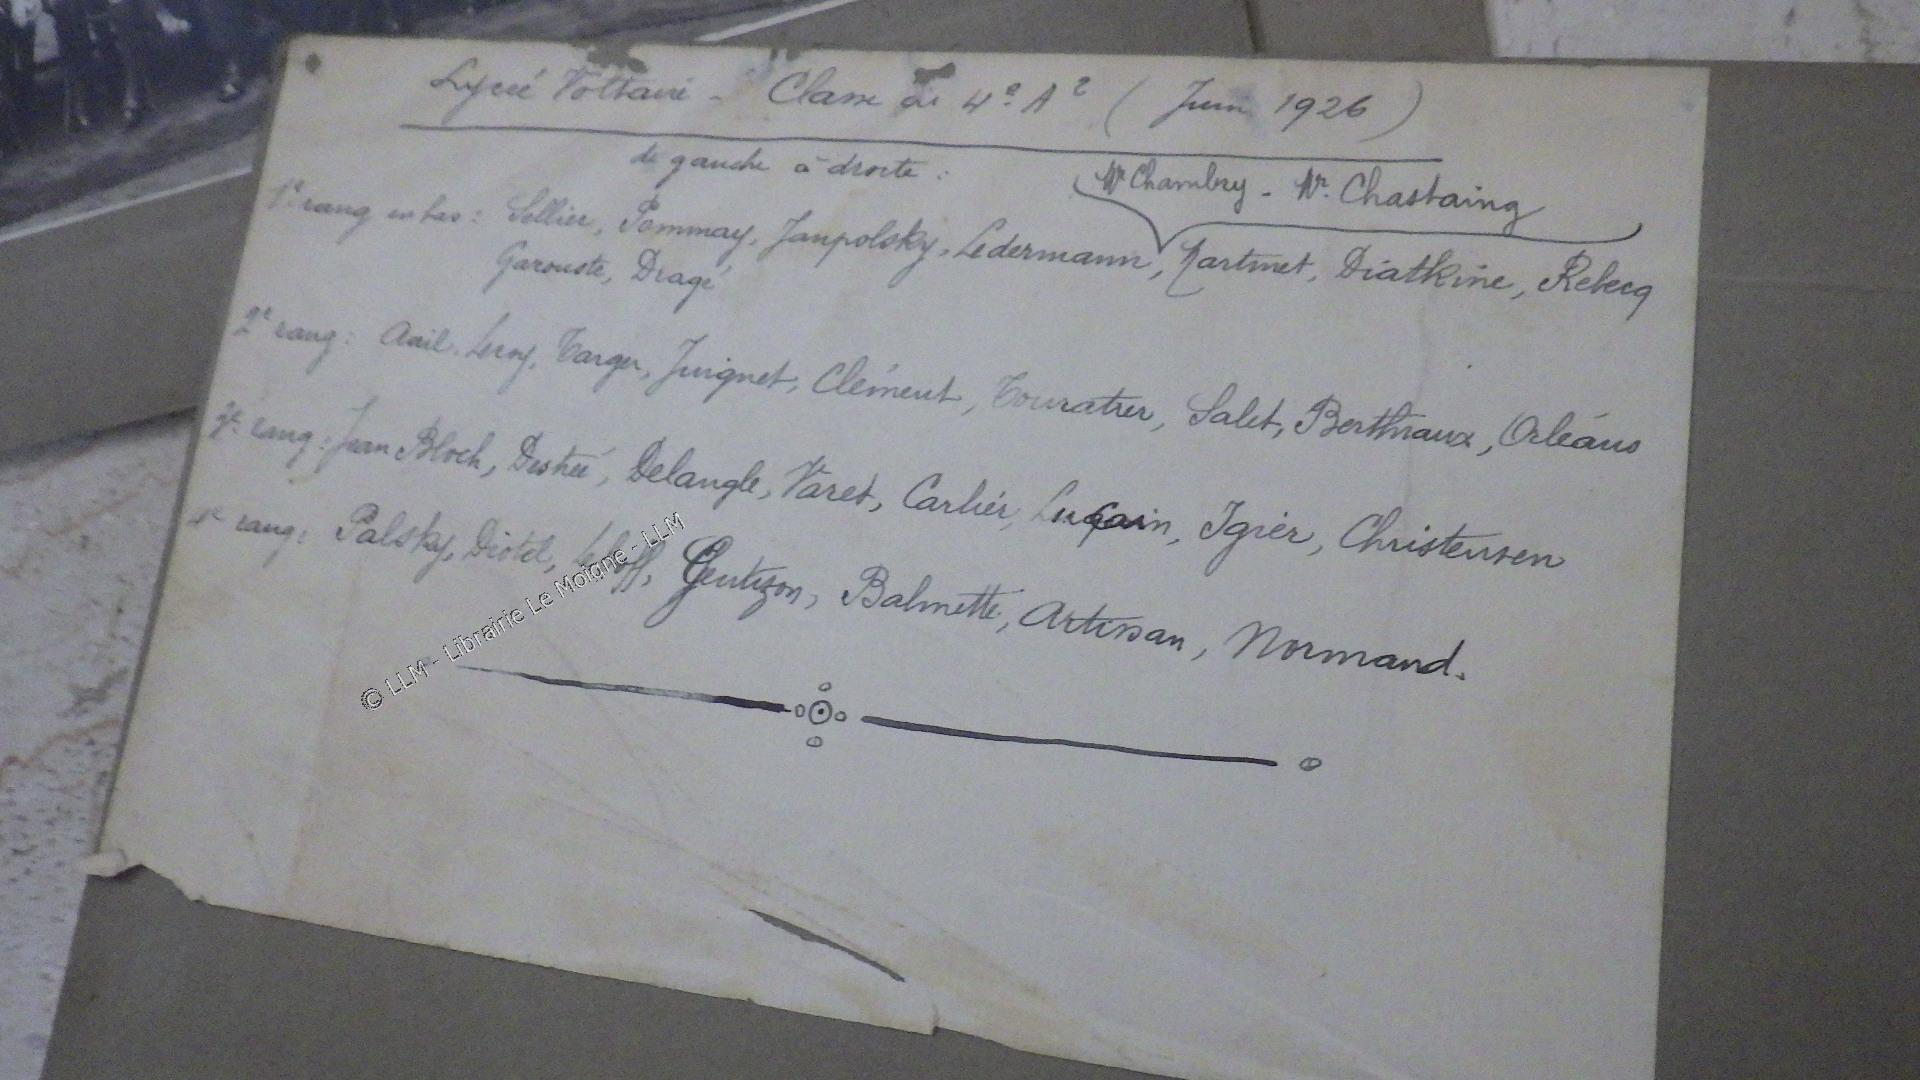 Lycée Voltaire - Classe de 4e A2 (Juin 1926)
de gauche à droite :
Mr Chambry - Mr Chastaing
1e rang en bas : Sellier, Pommay, Janpolsky, Ledermann, Martinet, Diatkine, Rebecq
Garouste, Dragé
2e rang : Leroy, Targer, Juignet, Clément, Touratier, Salet, Berthiaux, Orléans
3e rang : Jean Bloch, Destrée, Delangle, Varet, Carlier, Luçain, Igier, Christensen
4e rang : Palsky, Diotel, Gentizon, Balmette, Artissan, Normand.
© LLM - Librairie Le Moigne - LLM